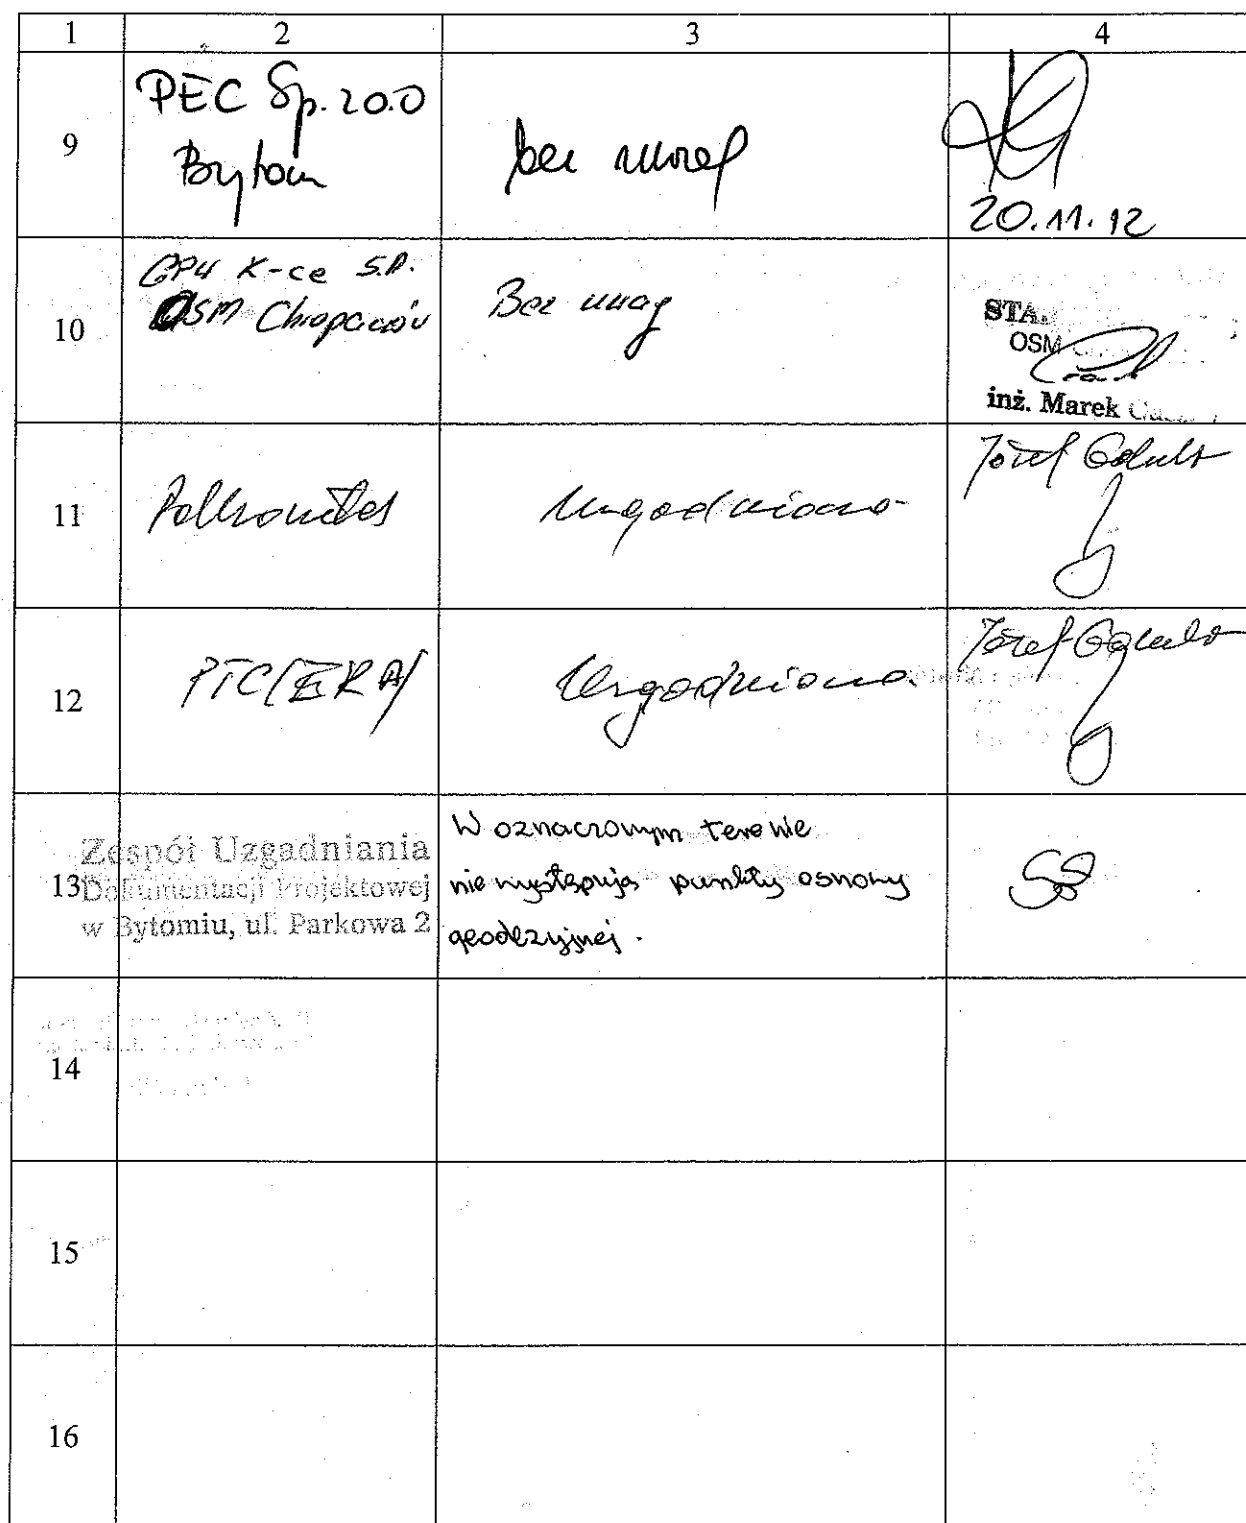 1 2 3 4
9 PEC Sp. z o.o Bytom bez uwag 20.11.12
10 K-ce S.A. OSM Chropaczów Bez uwag
OSM
inż. Marek
11 Polkomtel Uzgodniono Józef
12 PTC (ERA) Uzgodniono Józef
13 Zespół Uzgadniania
Dokumentacji Projektowej
w Bytomiu, ul. Parkowa 2
W oznaczonym terenie
nie występują punkty osnowy
geodezyjnej.
14
15
16